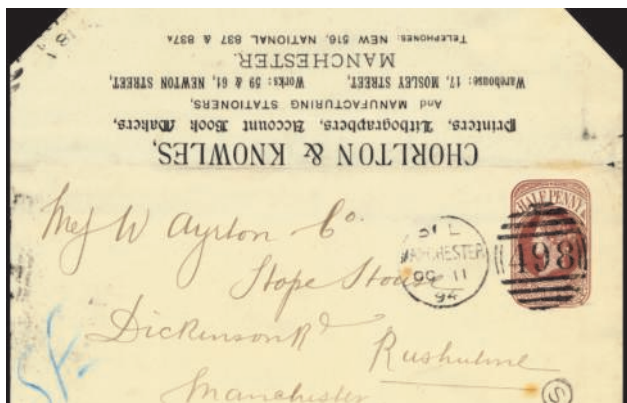 CHORLTON & KNOWLES,
Printers, Lithographers, Account Book Makers,
And MANUFACTURING STATIONERS,
Warehouse: 17, MOSLEY STREET, Works: 59 & 61, NEWTON STREET,
MANCHESTER.
TELEPHONES: NEW 516, NATIONAL 837 & 837A
HALFPENNY
498
MANCHESTER
OC 11
94
W Ayrton Co.
Hope House
Dickinson Rd
Rusholme
Manchester
S